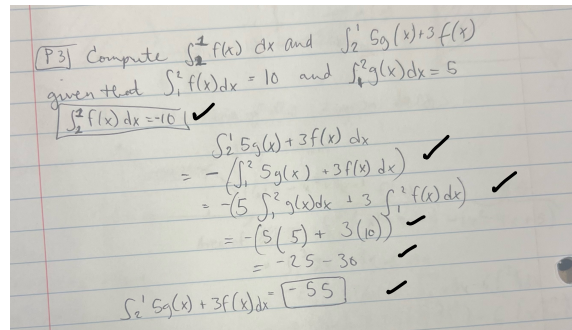 (P3) Compute ∫₂¹ f(x) dx and ∫₂¹ 5g(x)+3f(x)
given that ∫₁² f(x)dx = 10 and ∫₁² g(x)dx = 5
∫₂¹ f(x) dx = -10 ✓
∫₂¹ 5g(x) + 3f(x) dx
= -(∫₁² 5g(x) + 3f(x) dx) ✓
= -(5 ∫₁² g(x)dx + 3 ∫₁² f(x) dx) ✓
= -(5(5) + 3(10)) ✓
= -25 - 30 ✓
∫₂¹ 5g(x) + 3f(x)dx = -55 ✓